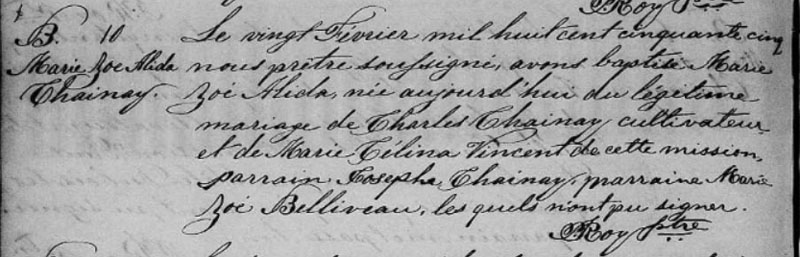 P.Roy ptre
B. 10
Marie Zoe Alida
Thainay.
Le vingt Février mil huit cent cinquante cinq
nous prêtre soussigné, avons baptisé Marie
Zoé Alida, née aujourd'hui du légitime
mariage de Charles Thainay cultivateur
et de Marie Célina Vincent de cette mission,
parrain Josephe Thainay, marraine Marie
Zoé Belliveau, les quels n'ont pu signer.
P.Roy ptre